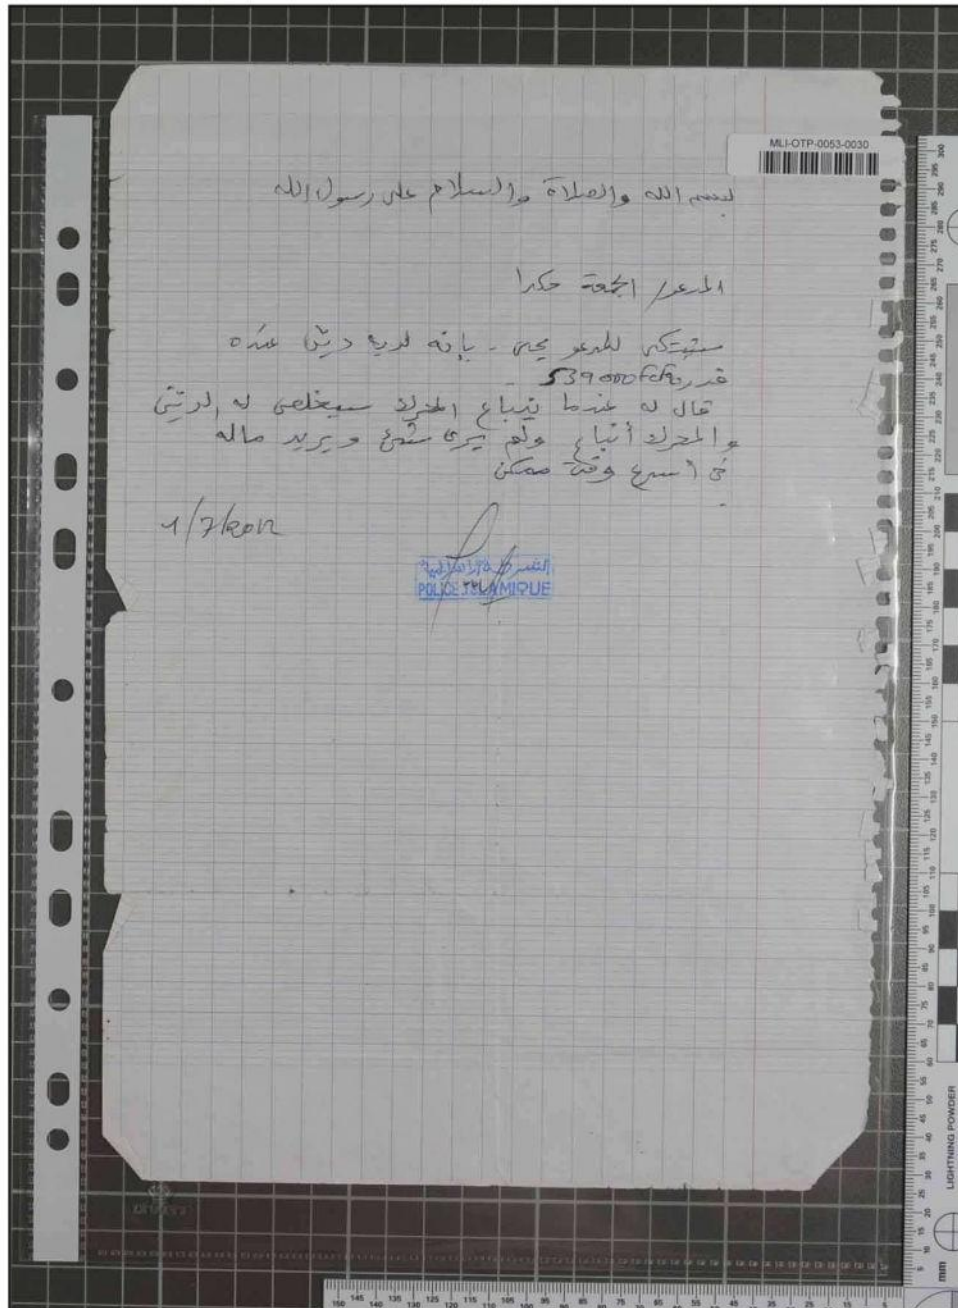 MLI-OTP-0053-0030
بسم الله والصلاة والسلام على رسول الله
المدعو/ الجمعة حكدا
ستيتكى للمدعو يحيى - بإنه لديه دين عنده
قدره 539000Fcfa -
قال له عندما تباع المحرك سيخلص له الدين
والمحرك أنباع ولم يرى شيئ ويريد ماله
فى أسرع وقت ممكن
1/7/2012
الشرطة الإسلامية
POLICE ISLAMIQUE
LIGHTNING POWDER
mm